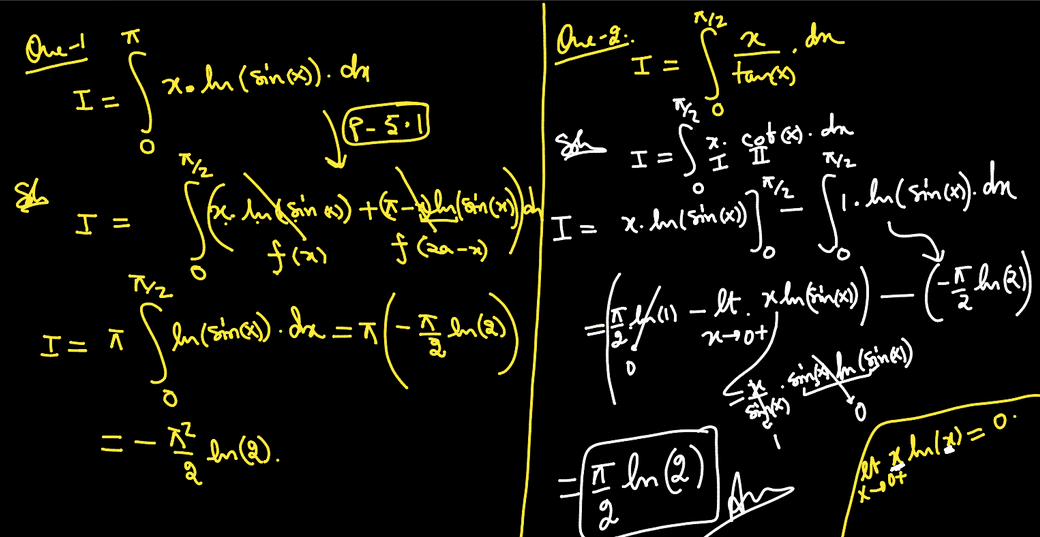 Que-1
I = ∫₀^π x. ln(sin(x)). dx
P-5.1
Sol
I = ∫₀^{π/2} (x. ln(sin(x)) + (π-x) ln(sin(x))) dx
f(x) f(2a-x)
I = π ∫₀^{π/2} ln(sin(x)). dx = π(-π/2 ln(2))
= - π²/2 ln(2).
Que-2:.
I = ∫₀^{π/2} x/tan(x) . dx
Sol
I = ∫₀^{π/2} x. cot(x). dx
I II
I = x. ln(sin(x))]₀^{π/2} - ∫₀^{π/2} 1. ln(sin(x)). dx
= (π/2 ln(1) - lt x→0+ . x ln(sin(x))) - (-π/2 ln(2))
0
= x/sin(x) . sin(x) ln(sin(x))
1 0
= π/2 ln(2) Ans
lt x→0+ x ln(x) = 0.